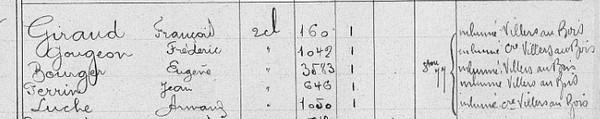 Giraud François 2cl 160 1 inhumé Villers au Bois
Gougeon Fréderic " 1042 1 inhumé cre Villers au Bois
Bourger Eugène " 3583 1 inhumé Villers au Bois
Ferrin Jean " 646 1 inhumé Villers au Bois
Luche Armand " 1050 1 inhumé cre Villers au Bois